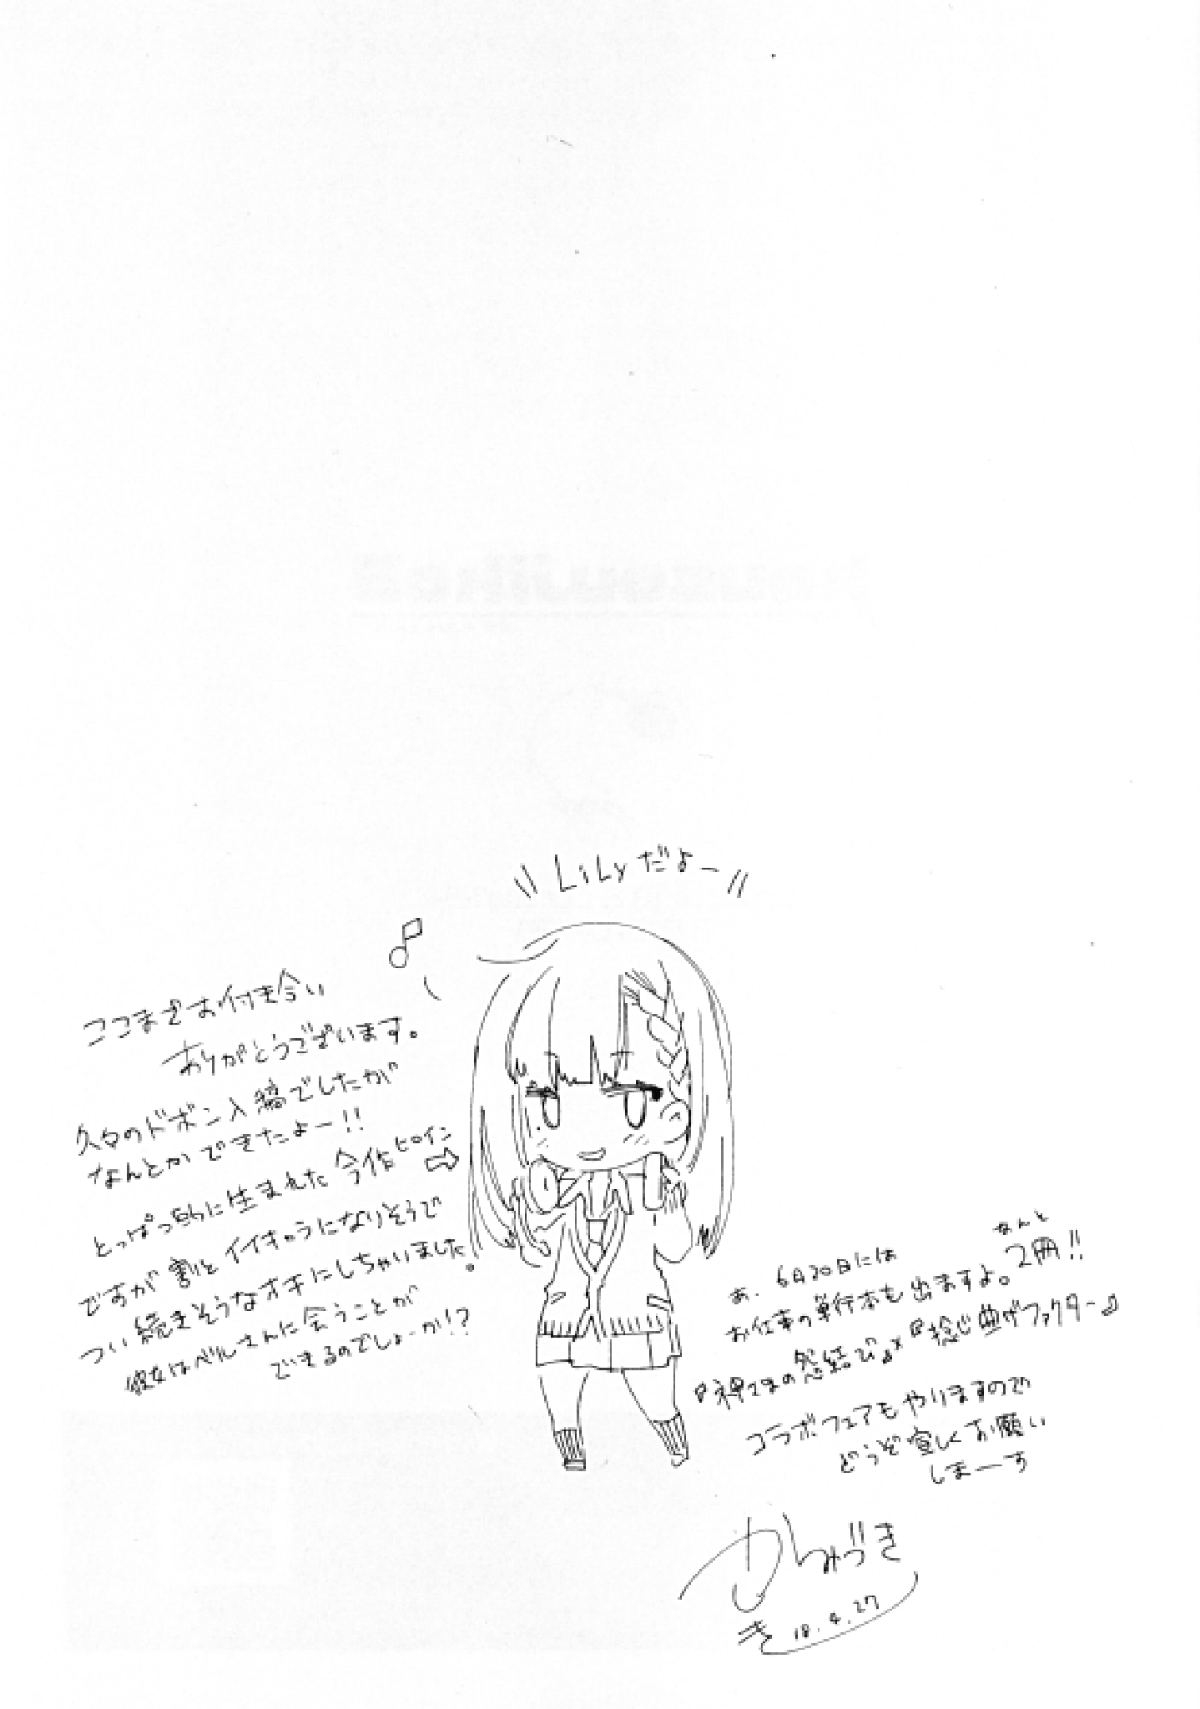 Lilyだよー
ココまでお付き合い
ありがとうございます。
久々のドボン入稿でしたが
なんとかできたよー!!
とっぱつ的に生まれた今作ヒロイン⇨
ですが割とイイキャラになりそうで
つい続きそうなオチにしちゃいました。
彼女はベルさんに会うことが
できるのでしょーか!?
あ、6月20日には
お仕事の単行本も出ますよ。なんと2冊!!
『神さまの怨結び』×『捻じ曲げファクター』
コラボフェアもやりますので
どうぞ宜しくお願い
しまーす
かつみづき
18.4.27